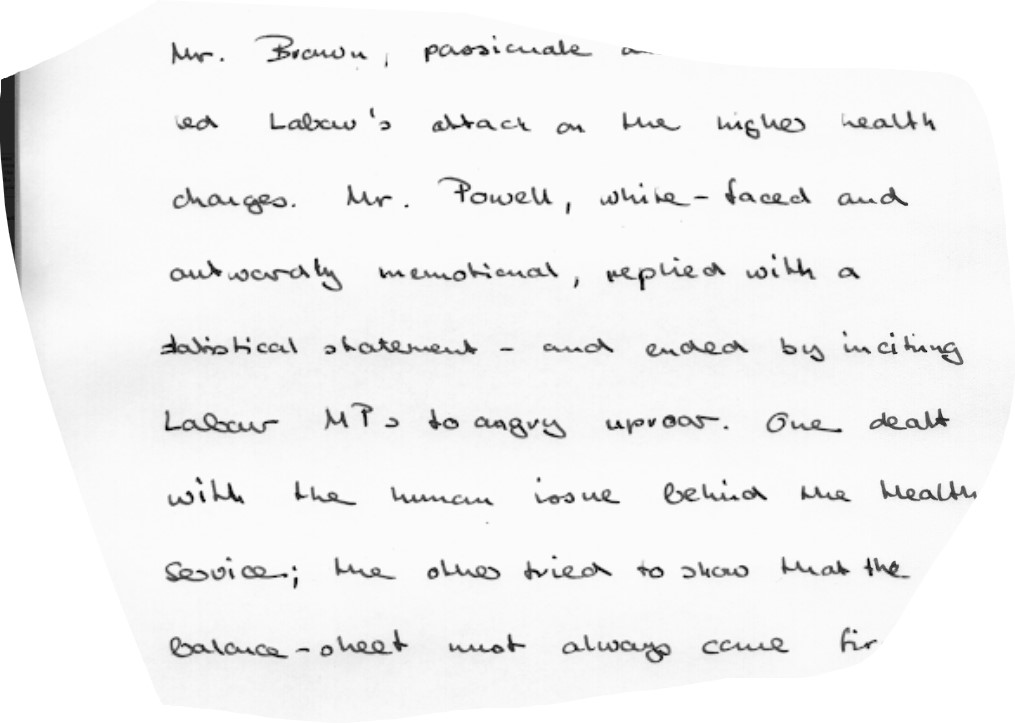 Mr. Brown, passionate
led Labour's attack on the higher health
charges. Mr. Powell, white-faced and
outwardly unemotional, replied with a
statistical statement - and ended by inciting
Labour MPs to angry uproar. One dealt
with the human issue behind the Health
Service; the other tried to show that the
balance-sheet must always come